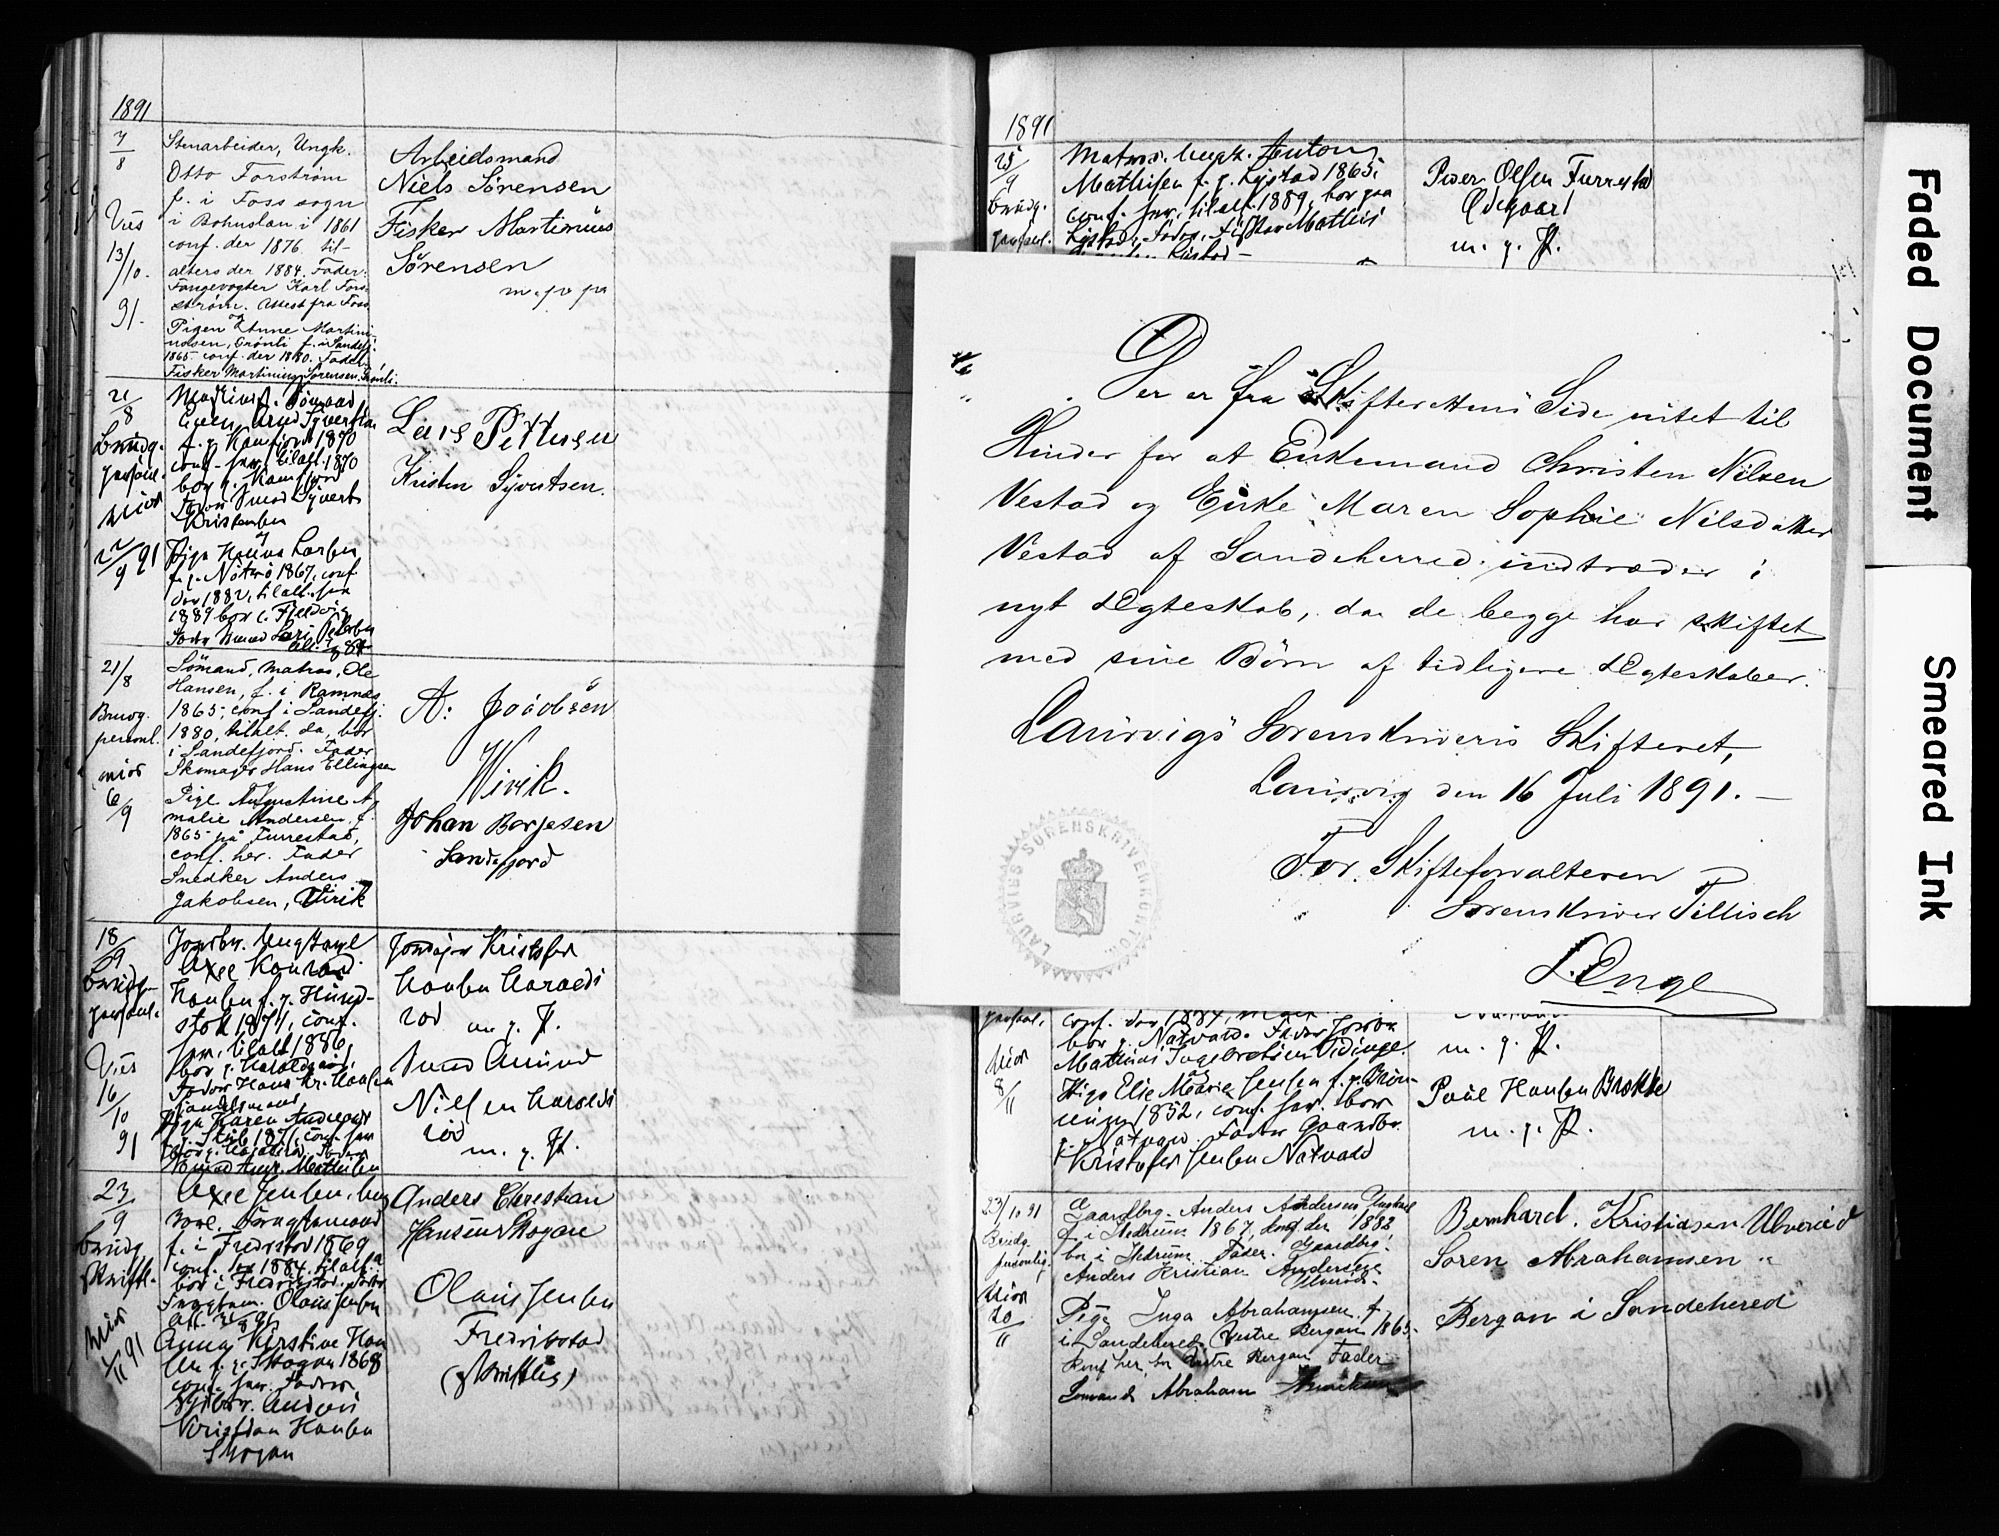 1891
7/8
Stenarbeider, Ungk.
Otto Forström
f. i Foss sogn
i Bohuslan i 1861
conf. der 1876 til-
alters der 1884. Fader:
Fangevogter Karl Fors-
ström. Attest fra Foss.
og
Pigen Anne Martini-
usen, Grönli f. i Sandefj.
1865 conf. der 1880. Fader:
Fisker Martinius Sörensen Grönli.
Viet
13/10.
91.
Arbeidsmand
Niels Sörensen
Fisker Martinius
Sörensen
m. p. p.
21/8
Brudg.
personl.
viet
22/9 91
f. p. Kamfjord 1870
conf. her, tilalt. 1890
bor p. Kamfjord
Fader Smed Syvert
Kristensen
og
f. p. Nöterö 1867, conf.
der 1882, tilalt. her
1889 bor i
Lars Pettersen
Kristen Syvertsen.
21/8
Brudg.
personl.
viet
6/9
Sömand, matros, Ole
Hansen, f. i Ramnæs
1865, conf. i Sandefj.
1880, tilalt. da, bor
i Sandefjord. Fader
Skomager Hans Ellingsen
og
Pige Augustine A-
malie Andersen f.
1865 på Furrestad,
conf. her. Fader
Snedker Anders
Jakobsen, Virik
A: Jacobsen
Virik.
Johan Borjesen
Sandefjord
18/9
Brudg.
personl.
Viet
16/10
91
Jordbr. Ungkarl
Axel Konrad
Hansen f. p. Hund-
stok 1871, conf.
her, tilalt 1886,
bor p. Haroldsröd.
Fader Hans Kr. Hansen
Pige Karen
Jordejer Kristofer
Hansen Harolds
röd m. p. P.
Smed Amund
Nielsen Harolds
röd
m. p. P.
23/9
Brudg.
skriftl.
viet
1/11 91
Axel Jensen, Ung
f. i Fredrikstad 1869
conf. der 1884, tilalt.
bor i Fredrikstad. Fader
Olaus Jensen
Anna Kirstine Han
sen f. p. Skogan 1868
conf. her. Fader
Anders
Kristian Hansen
Skogan
Anders Christian
Hansen Skogan
Olaus Jensen
Fredrikstad
(skriftlig)
1891
25/9
Brudg.
personl.
Matros. Ungk. Anton
Mathisen f. p. Lystad 1865,
conf. her, tilalt. 1889, bor paa
Lystad, Fader, Fisker Mathis
Lystad
Peder Olsen Furrestad
Ödegaard
m. p. P.
Der er fra Skifterettens Side intet til
Hinder for at Enkemand Christen Nilsen
Vestad og Enke Maren Sophie Nilsdatter
Vestad af Sandeherred indtræder i
nyt Ægteskab, da de begge har skiftet
med sine Börn af tidligere Ægteskaber.
Laurvigs Sorenskriveris Skifteret,
Laurvig den 16 Juli 1891. —
For Skifteforvalteren
Sorenskriver Tillisch
L. Enge
LAURVIGS SORENSKRIVERKONTOR
personl.
viet
8/11
conf. der 1884,
bor p. Natvald. Fader Jordbr.
Mathias Ingebretsen Vidinge.
og
Pige Elie Marie Jensen f. p. Brön-
ningen 1852, conf. her. bor
p. Natvald. Fader Gaardbr.
Kristofer Jensen Natvald
m. p. P.
Paul Hansen Brekke
m. p. P.
23/10 91
Brudg.
personlig.
viet
20/11
Gaardbrg. Anders Andersen Ulverød
f. i Hedrum 1867, conf der 1882
bor i Hedrum Fader. Gaardbrg.
Anders Kristian Andersen
Ulveröd.
Pige Inga Abrahamsen f.
i Sandehered Vestre Bergan 1865.
konf her, bor Vestre Bergan Fader
Sömand Abraham
Bernhard. Kristiasen Ulveröd
Soren Abrahamsen "
Bergan i Sandehered
Faded Document
Smeared Ink